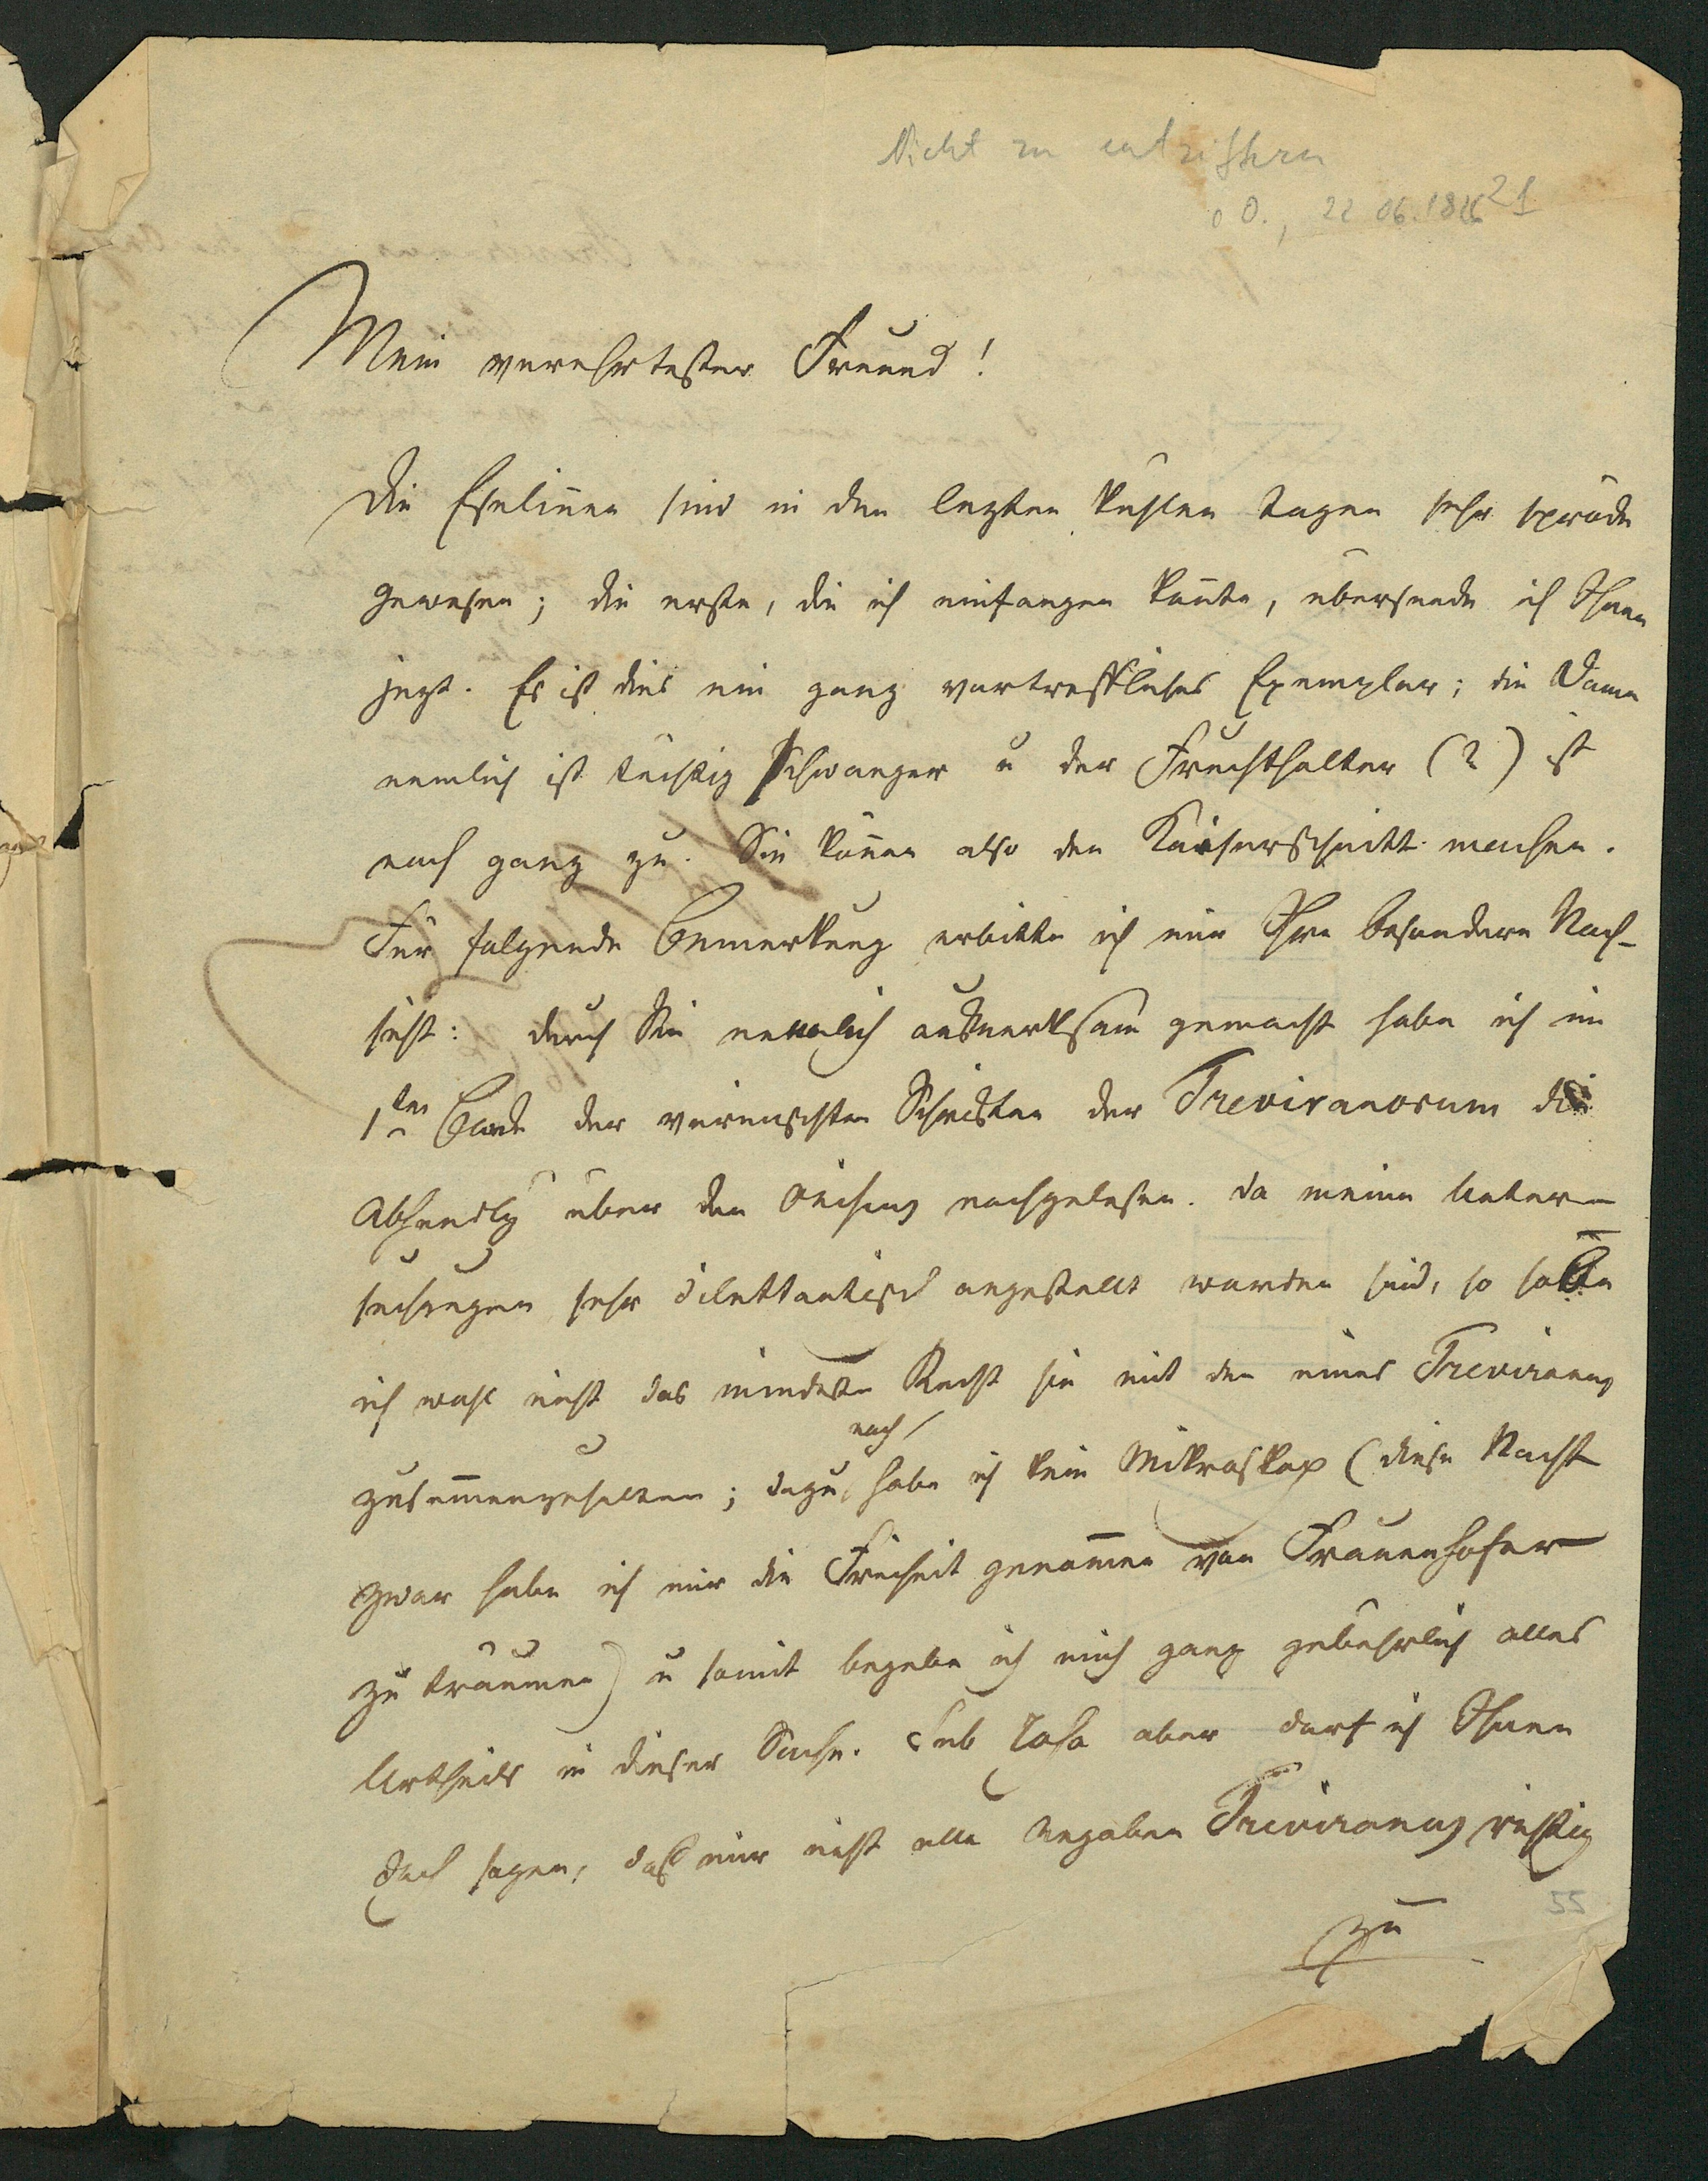 Nicht zu entziffern
o O., 22 06.1826 21
Mein verehrtester Freund!
Die Eselinnen sind in den lezten kühlen Tagen sehr spröde
gewesen; die erste, die ich einfangen konnte, übersende ich Ihnen
jezt. Es ist dies ein ganz vortreffliches Exemplar; die Dame
nemlich ist tüchtig schwanger u der Fruchthalter (?) ist
noch ganz zu. Sie können also den Kaiserschnitt machen.
Für folgende Bemerkung erbitte ich mir Ihre besondere Nach-
sicht: durch Sie neulich aufmerksam gemacht habe ich im
1ten Bande der vermischten Schriften der Treviranorum die
Abhandlg über den Oniscus nachgelesen. Da meine Unter-
suchungen sehr dilettantisch angestellt worden sind, so habe
ich wohl nicht das mindeste Recht sie mit den eines Treviranus
zusammenzuhalten; dazu habe ich kein Mikroskop (diese Nacht
noch
zwar habe ich mir die Freiheit genommen von Frauenhofer
zu träumen) u somit begebe ich mich ganz gebührlich alles
Urtheils in dieser Sache. Sub rosa aber darf ich Ihnen
doch sagen, daß mir nicht alle Angaben Treviranus richtig
zu
55